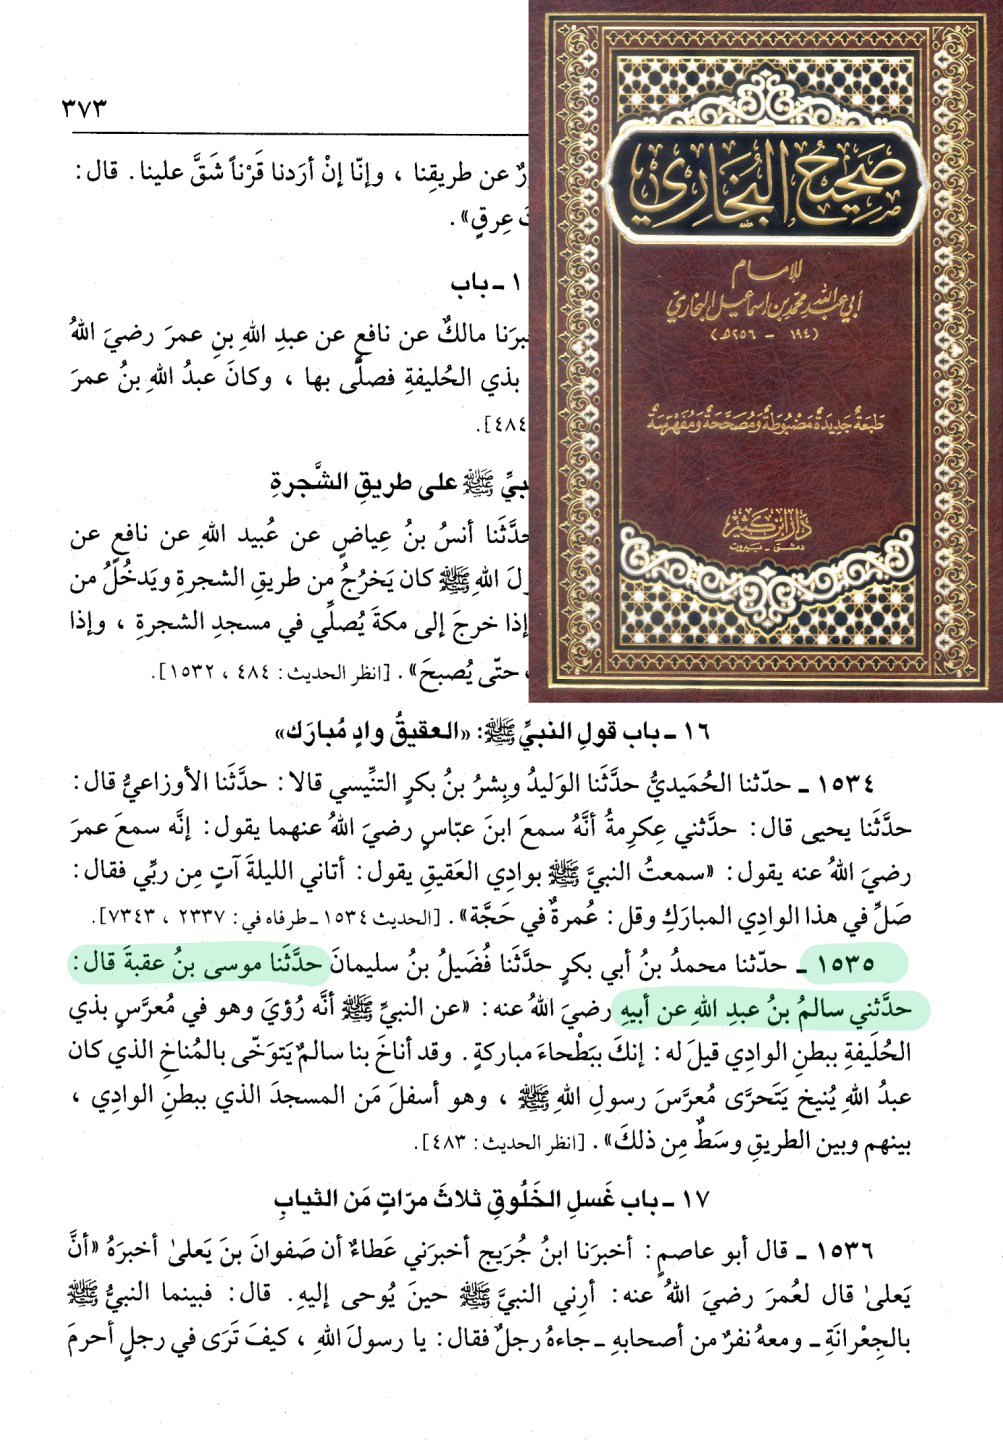 ٣٧٣
عن طريقِنا ، وإنّا إنْ أرَدنا قَرْناً شَقَّ علينا. قال:
عِرقٍ».
ـ باب
مالكٌ عن نافع عن عبدِ اللهِ بنِ عمرَ رضيَ اللهُ
بذي الحُليفةِ فصلَّى بها ، وكانَ عبدُ اللهِ بنُ عمرَ
٤٨٤].
ﷺ على طريقِ الشَّجرةِ
أنسُ بنُ عِياضٍ عن عُبيد اللهِ عن نافعٍ عن
اللهِ ﷺ كان يَخرُجُ من طريقِ الشجرةِ ويَدخُلُ من
إذا خرجَ إلى مكةَ يُصلِّي في مسجدِ الشجرةِ ، وإذا
حتّى يُصبحَ». [انظر الحديث: ٤٨٤ ، ١٥٣٢].
صَحِيحُ البُخَارِي
للإمام
أبي عبد الله محمد بن إسماعيل البخاري
(١٩٤ - ٢٥٦هـ)
طَبعَةٌ جَدِيدَةٌ مَضْبُوطَةٌ وَمُصَحَّحَةٌ وَمُفَهْرَسَةٌ
دَارُ ابْنِ كَثِير
دمشق - بيروت
١٦ ـ باب قولِ النبيِّ ﷺ: «العقيقُ وادٍ مُبارَك»
١٥٣٤ ـ حدّثنا الحُمَيديُّ حدَّثَنا الوَليدُ وبِشرُ بنُ بكرٍ التنِّيسي قالا: حدَّثَنا الأوزاعيُّ قال:
حدَّثَنا يحيى قال: حدَّثني عِكرِمةُ أنَّهُ سمعَ ابنَ عبّاسٍ رضيَ اللهُ عنهما يقول: إنَّه سمعَ عمرَ
رضيَ اللهُ عنه يقول: «سمعتُ النبيَّ ﷺ بوادِي العَقيقِ يقول: أتاني الليلةَ آتٍ مِن ربِّي فقال:
صَلِّ في هذا الوادِي المبارَكِ وقل: عُمرةٌ في حَجَّة». [الحديث ١٥٣٤ ـ طرفاه في: ٢٣٣٧ ، ٧٣٤٣].
١٥٣٥ ـ حدّثنا محمدُ بنُ أبي بكرٍ حدَّثَنا فُضَيلُ بنُ سليمانَ حدَّثَنا موسى بنُ عقبةَ قال:
حدَّثني سالمُ بنُ عبدِ اللهِ عن أبيهِ رضيَ اللهُ عنه: «عن النبيِّ ﷺ أنَّه رُؤيَ وهو في مُعرَّسٍ بذي
الحُلَيفةِ ببطنِ الوادِي قيلَ له: إنكَ ببَطْحاءَ مباركةٍ. وقد أناخَ بنا سالمٌ يَتوَخّى بالمُناخِ الذي كان
عبدُ اللهِ يُنيخ يَتَحرَّى مُعرَّسَ رسولِ اللهِ ﷺ ، وهو أسفلَ مَن المسجدَ الذي ببطنِ الوادِي ،
بينهم وبين الطريقِ وسَطٌ مِن ذلكَ». [انظر الحديث: ٤٨٣].
١٧ ـ باب غَسلِ الخَلُوقِ ثلاثَ مرّاتٍ مَن الثيابِ
١٥٣٦ ـ قال أبو عاصمٍ: أخبرَنا ابنُ جُرَيج أخبرَني عَطاءٌ أن صَفوانَ بنَ يَعلىٰ أخبرَهُ «أنَّ
يَعلىٰ قال لعُمرَ رضيَ اللهُ عنه: أرِني النبيَّ ﷺ حينَ يُوحى إليهِ. قال: فبينما النبيُّ ﷺ
بالجِعْرانَةِ ـ ومعهُ نفرٌ من أصحابهِ ـ جاءهُ رجلٌ فقال: يا رسولَ اللهِ ، كيفَ تَرَى في رجلٍ أحرمَ